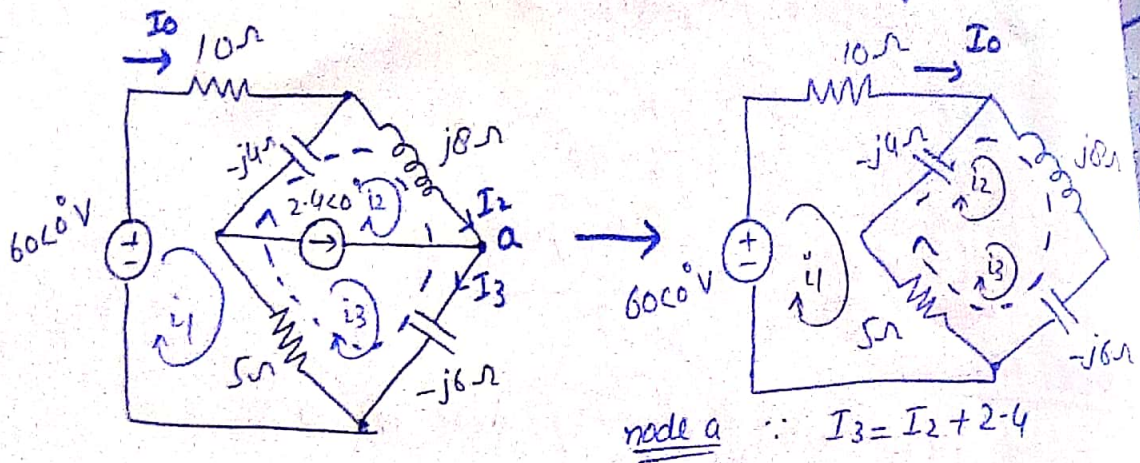 I0
10Ω
-j4Ω
j8Ω
2.4<0°
i2
I2
a
60<0° V
+
−
i1
i3
I3
5Ω
-j6Ω
10Ω
I0
-j4Ω
j8Ω
i2
60<0° V
+
−
i1
i3
5Ω
-j6Ω
node a ∵ I3 = I2 + 2.4